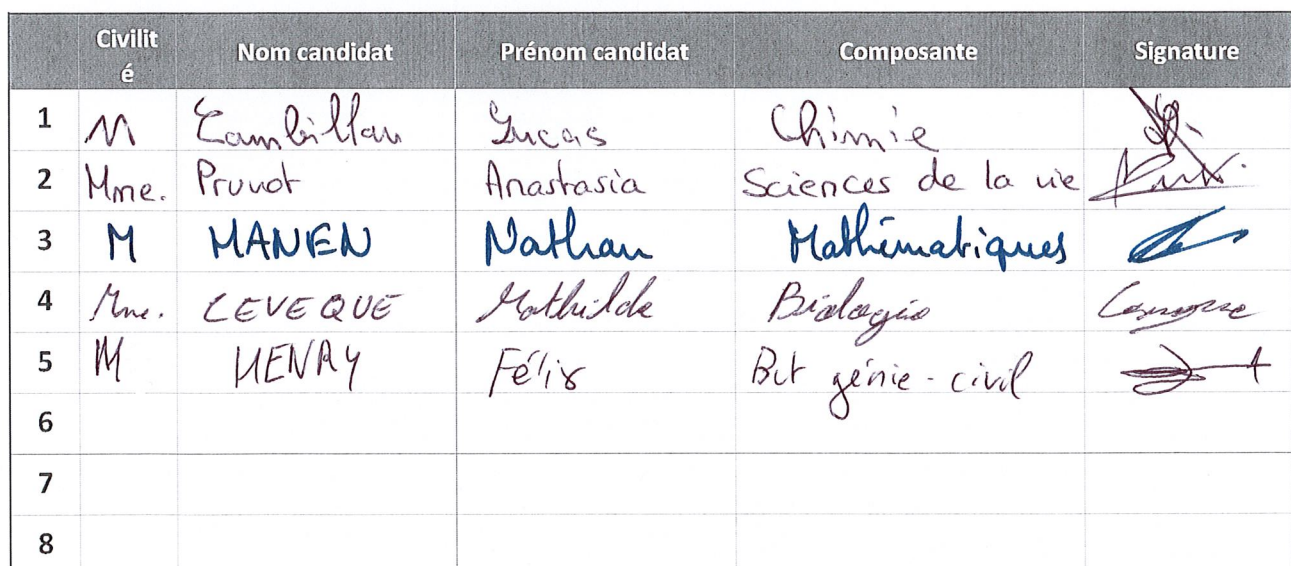 Civilité Nom candidat Prénom candidat Composante Signature
1 M Lucas Chimie
2 Mme. Prunot Anastasia Sciences de la vie
3 M MANEN Nathan Mathématiques
4 Mme. LEVEQUE Mathilde Biologie
5 M HENRY Félix But génie-civil
6
7
8